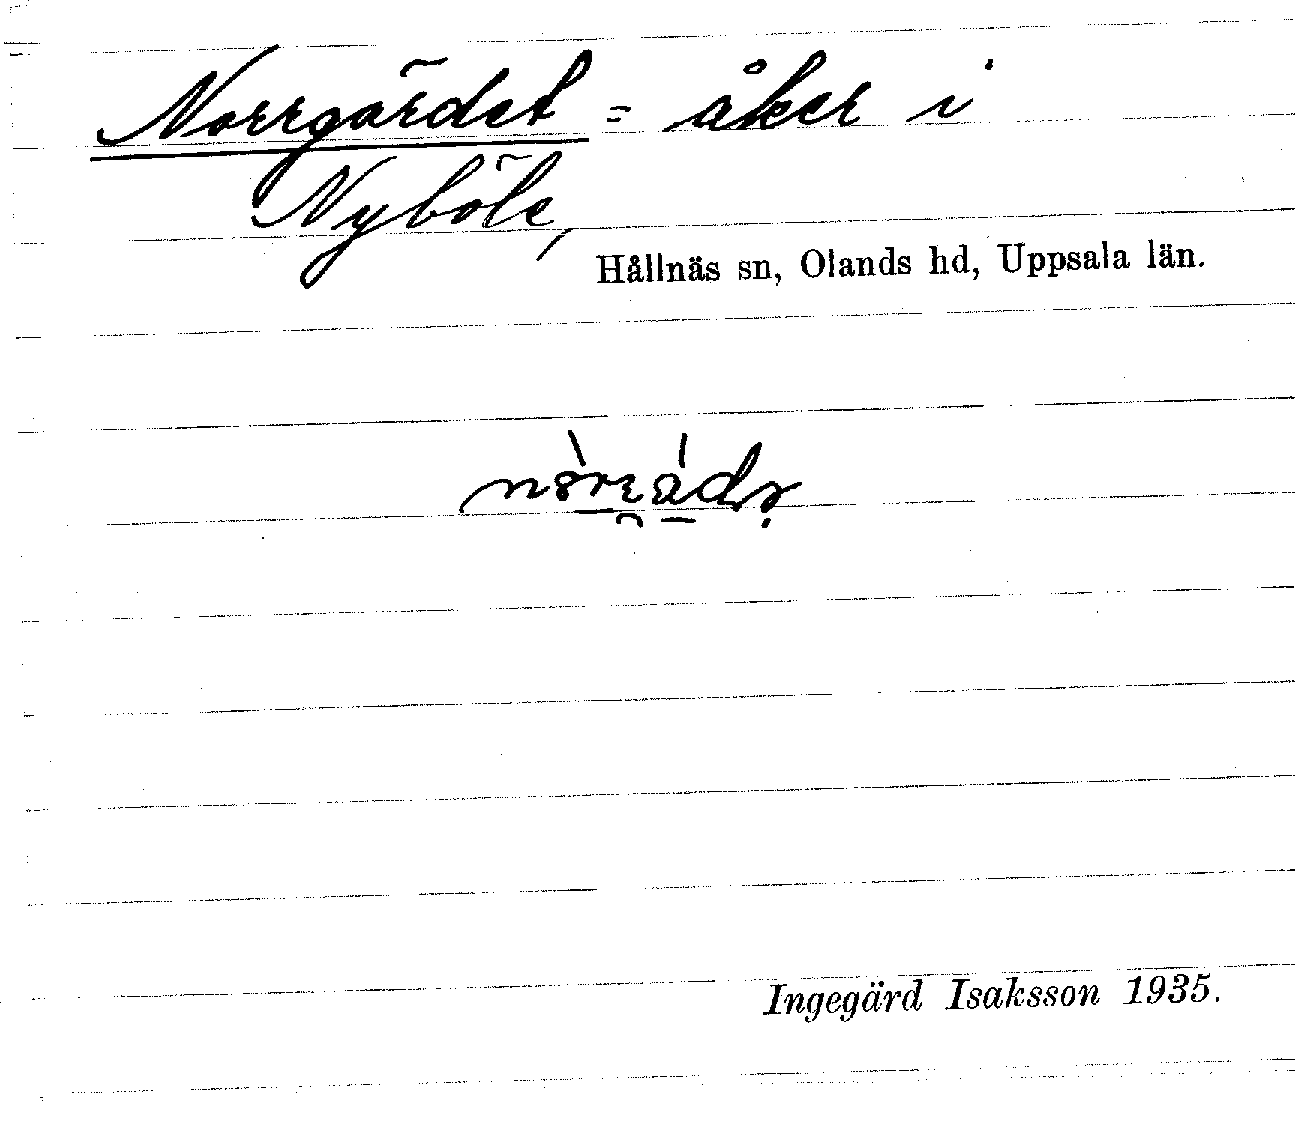 Norrgärdet = åker i
Nyböle,
Hållnäs sn, Olands hd, Uppsala län.
Ingegärd Isaksson 1935.